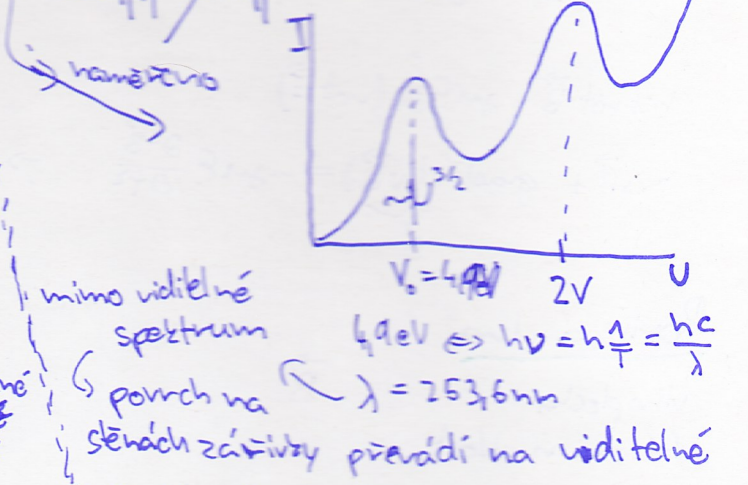 I
naměřeno
~U^3/2
V₀ = 4,9V
2V
U
mimo viditelné
spektrum
4,9eV ⇔ hν = h 1/T = hc/λ
povrch na
λ = 253,6nm
stěnách zářivky převádí na viditelné